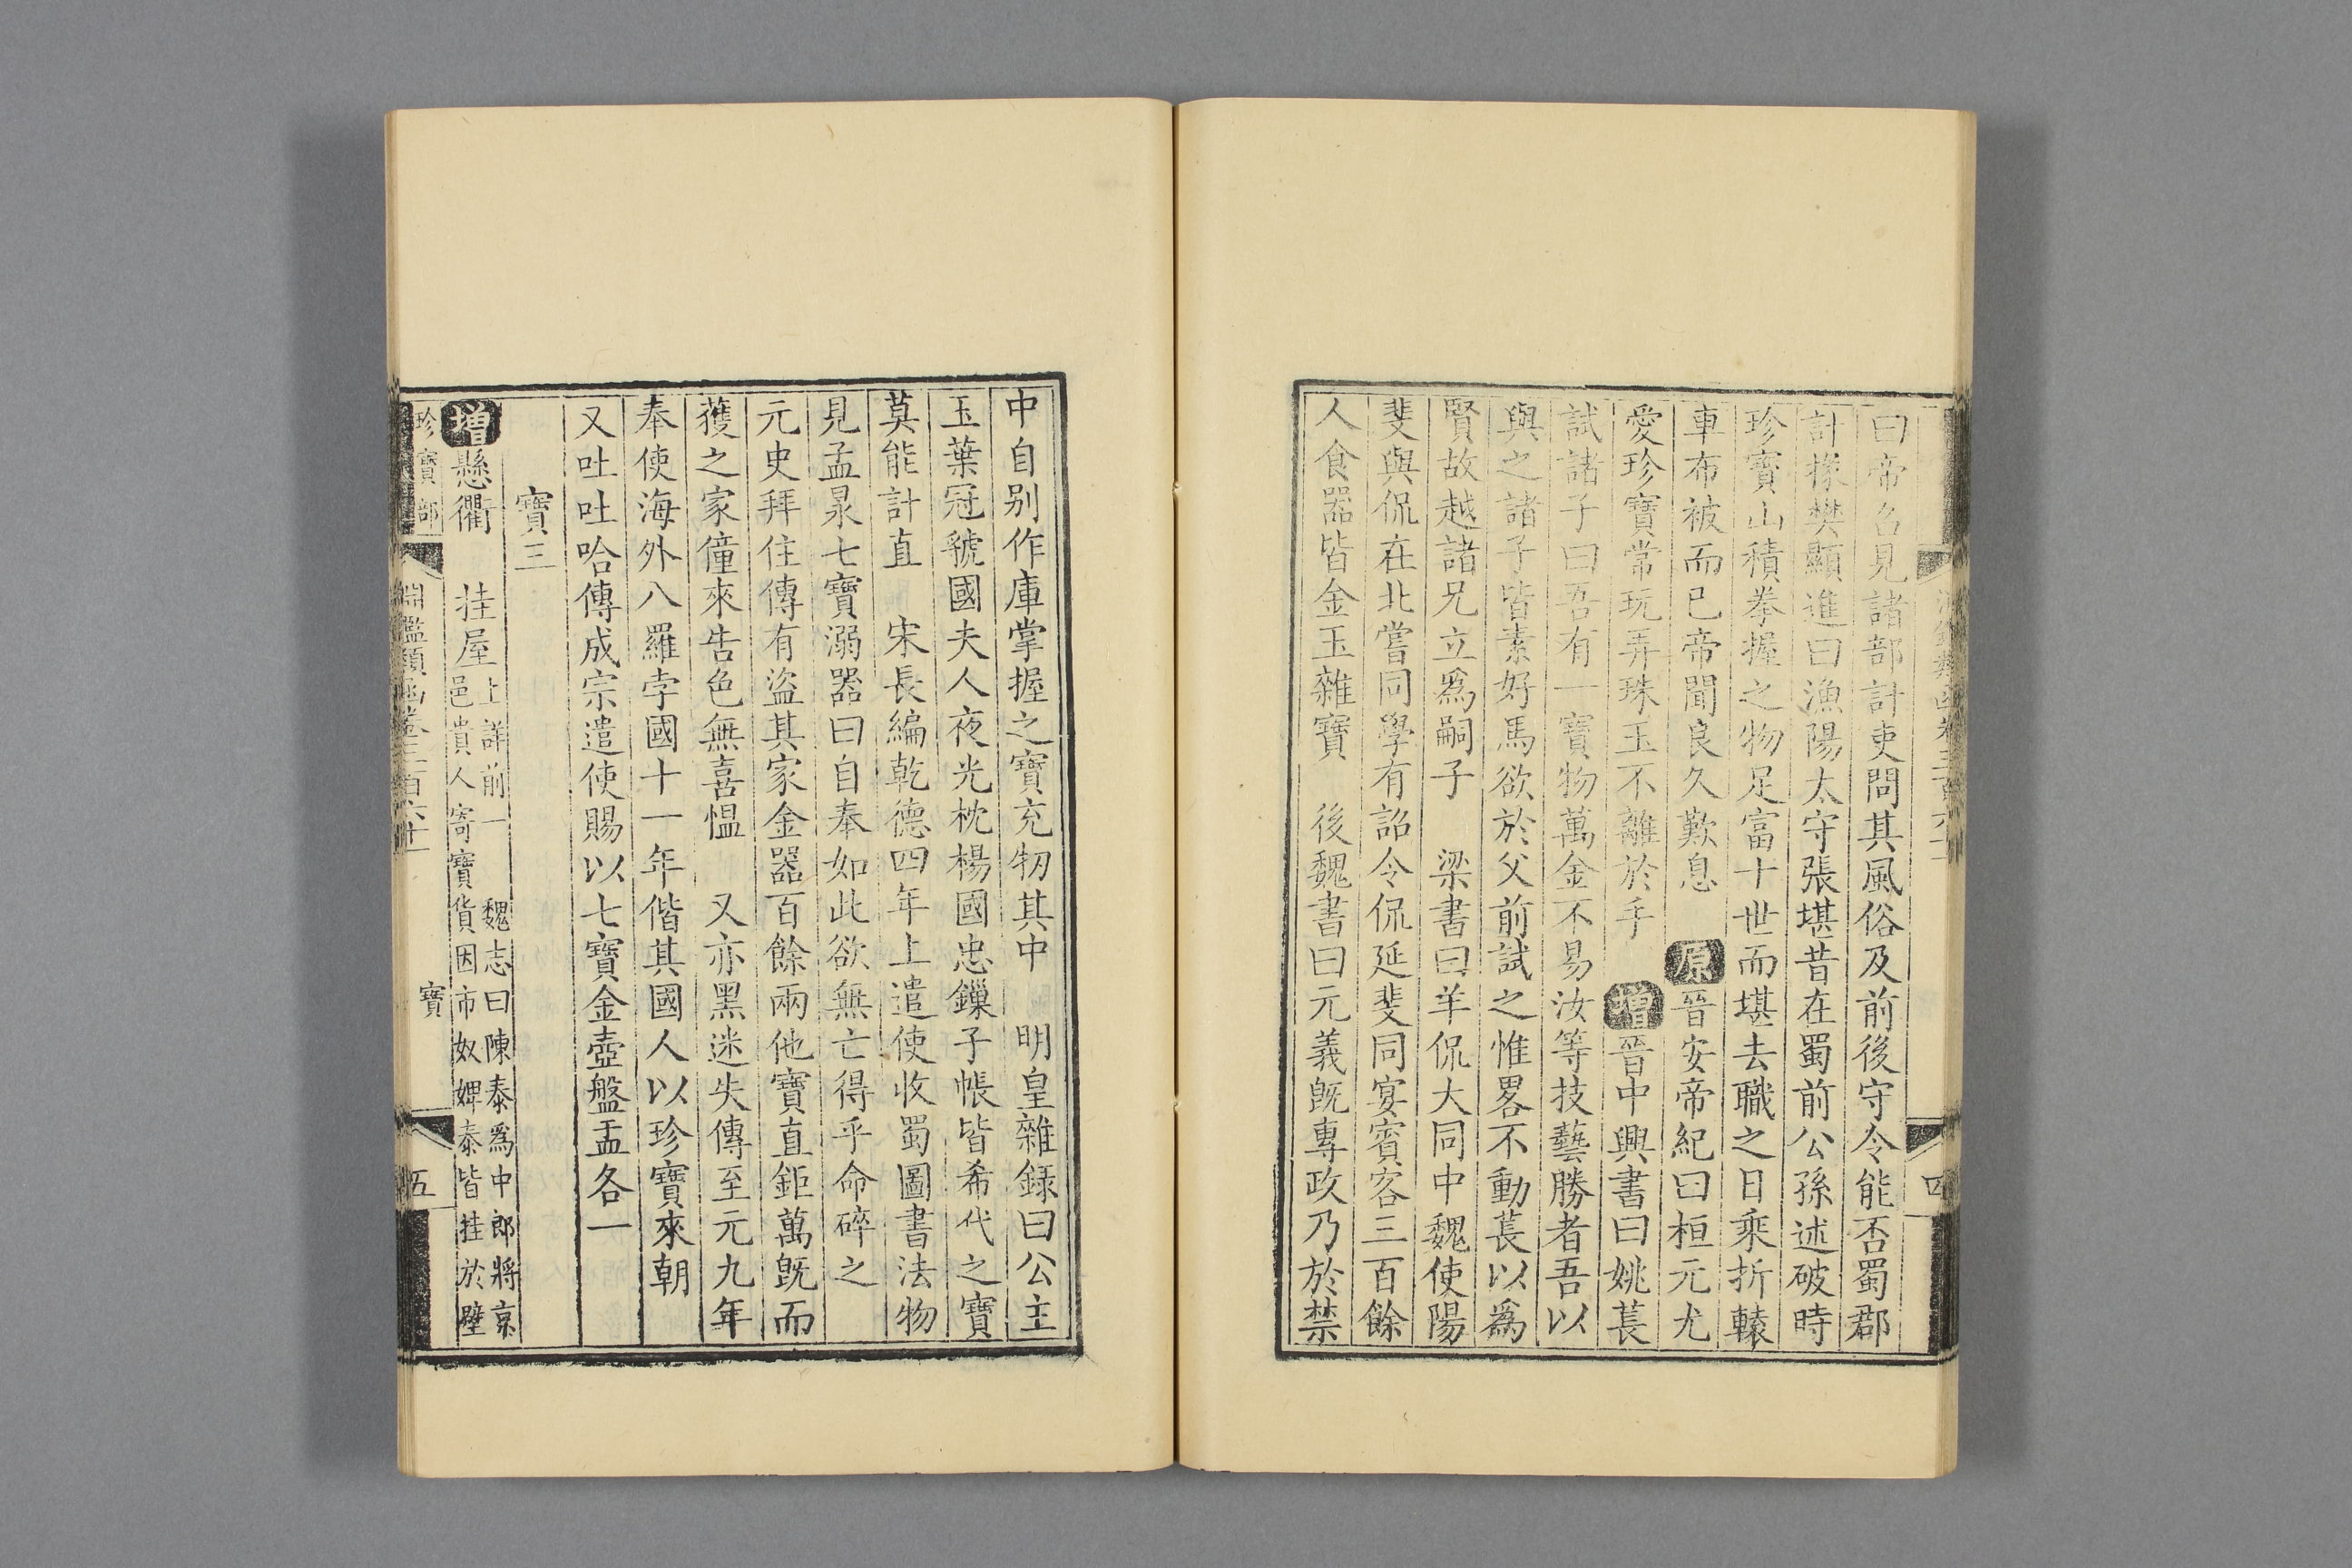 曰帝召見諸部計吏問其風俗及前後守令能否蜀郡
計掾樊顯進曰漁陽太守張堪昔在蜀前公孫述破時
珍寶山積拳握之物足富十世而堪去職之日乘折轅
車布被而已帝聞良久歎息 原晉安帝紀曰桓元尤
愛珍寶常玩弄珠玉不離於手 增晉中興書曰姚萇
試諸子曰吾有一寶物萬金不易汝等技藝勝者吾以
與之諸子皆素好馬欲於父前試之惟畧不動萇以爲
賢故越諸兄立爲嗣子 梁書曰羊侃大同中魏使陽
斐與侃在北嘗同學有詔令侃延斐同宴賓客三百餘
人食器皆金玉雜寶 後魏書曰元義旣專政乃於禁
四
中自别作庫掌握之寶充牣其中 明皇雜録曰公主
玉葉冠虢國夫人夜光枕楊國忠鏁子帳皆希代之寶
莫能計直 宋長編乾德四年上遣使收蜀圖書法物
見孟㫤七寶溺器曰自奉如此欲無亡得乎命碎之
元史拜住傳有盜其家金器百餘兩他寶直鉅萬旣而
獲之家僮來告色無喜愠 又亦黑迷失傳至元九年
奉使海外八羅孛國十一年偕其國人以珍寶來朝
又吐吐哈傳成宗遣使賜以七寶金壺盤盂各一
寶三
增懸衢 挂屋上詳前一 魏志曰陳泰爲中郎將京
邑貴人寄寶貨因市奴婢泰皆挂於壁
珍寶部 淵鑑類函卷三百六十一 寶 五